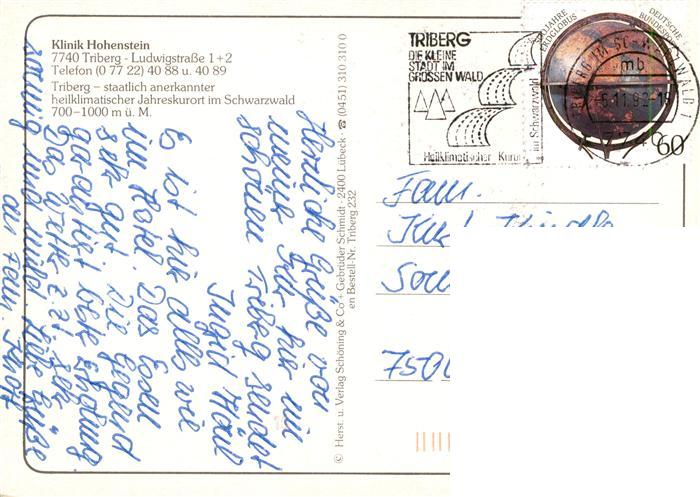 Klinik Hohenstein
7740 Triberg - Ludwigstraße 1+2
Telefon (0 77 22) 40 88 u. 40 89
Triberg – staatlich anerkannter
heilklimatischer Jahreskurort im Schwarzwald
700–1000 m ü. M.
TRIBERG
DIE KLEINE
STADT IM
GROSSEN WALD
Heilklimatischer Kurort
im Schwarzwald
JAHRE
ERDGLOBUS
DEUTSCHE
BUNDESPOST
mb
60
© Herst. u. Verlag Schöning & Co + Gebrüder Schmidt · 2400 Lübeck · ☎ (0451) 310 310 0
en Bestell-Nr. Triberg 232
Herzliche Grüße von
meiner Kur hier im
schönen Triberg sendet
Ingrid
Es ist hier alles wie
im Hotel. Das Essen
sehr gut. Die Gegend
garantiert beste Erholung
Das Wetter z.Zt sehr
sonnig und mild liebe Grüße
an Fam.
Fam.
750